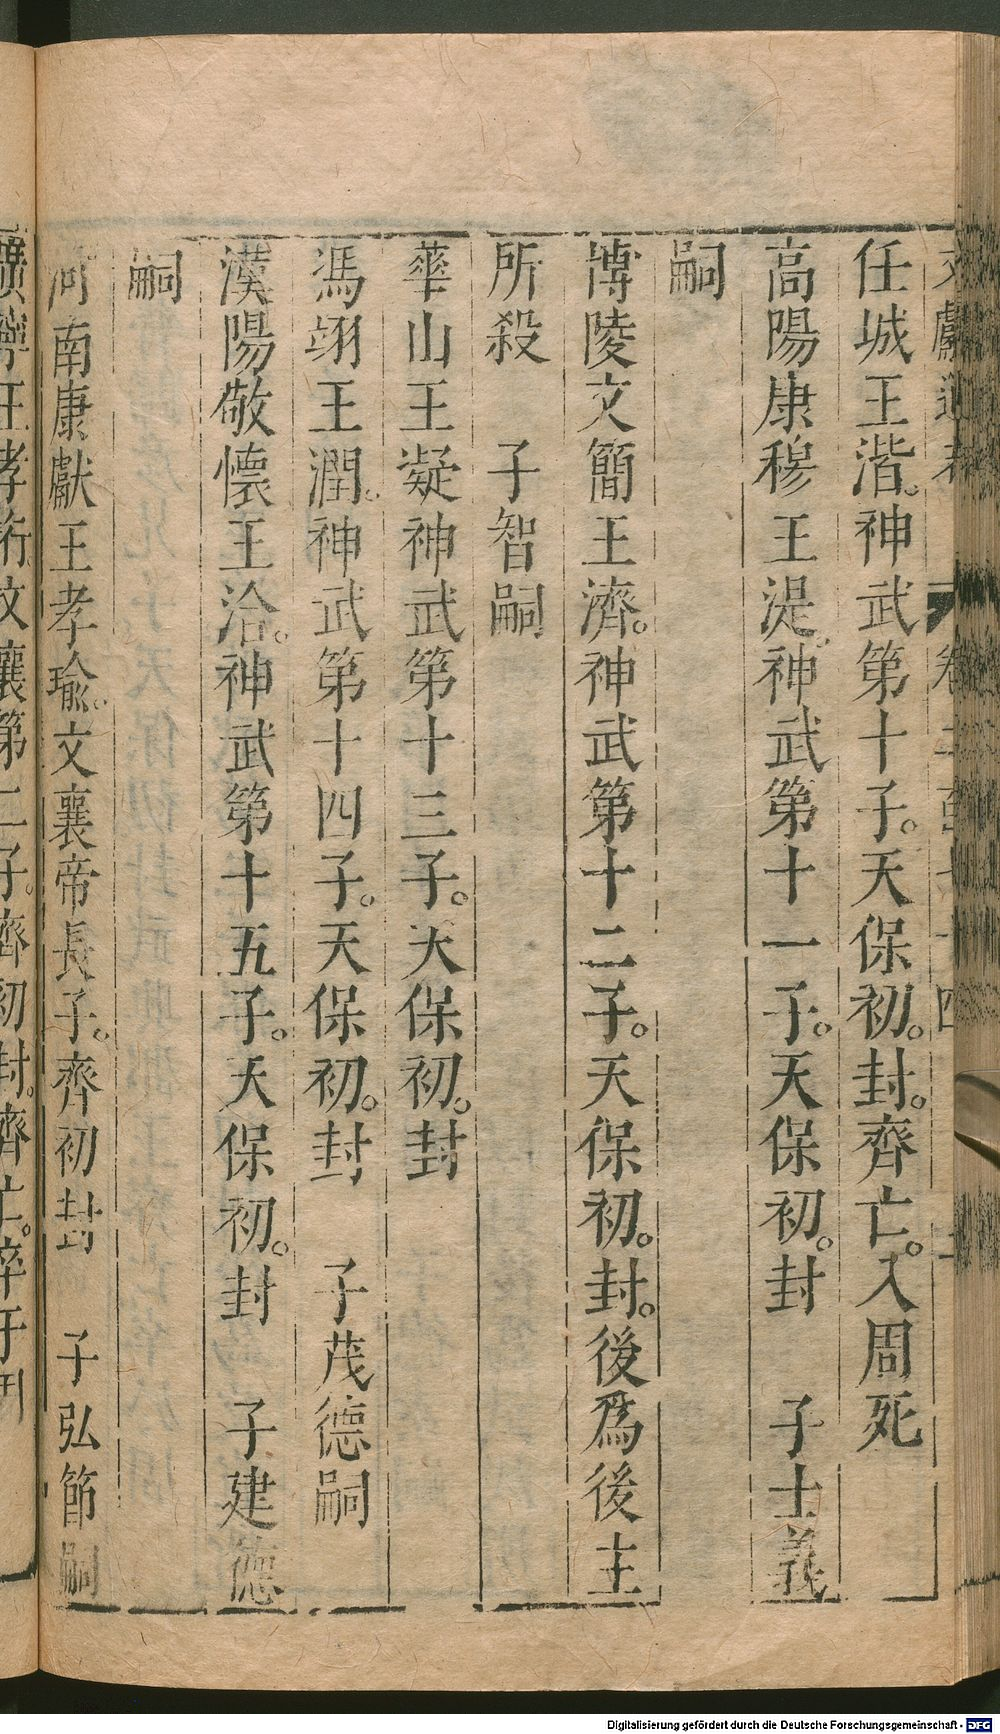 任城王湝。神武第十子。天保初。封。齊亡。入周死
高陽康穆王湜。神武第十一子。天保初。封　子士義
嗣
博陵文簡王濟。神武第十二子。天保初。封。後爲後主
所殺　子智嗣
華山王凝神武第十三子。天保初。封
馮翊王潤。神武第十四子。天保初。封　子茂德嗣
漢陽敬懷王洽。神武第十五子。天保初。封　子建德
嗣
河南康獻王孝瑜。文襄帝長子。齊初封　子弘節嗣
王孝珩文襄第二子。齊初封。齊亡。卒于
Digitalisierung gefördert durch die Deutsche Forschungsgemeinschaft - DFG